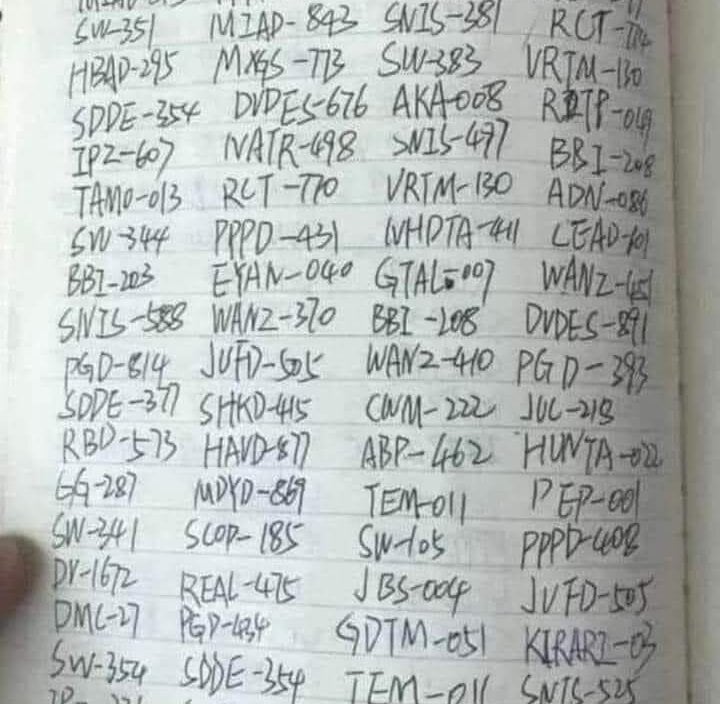 SW-351 MIAD-843 SNIS-381 RCT-714
HBAD-295 MXGS-773 SW-383 VRTM-130
SDDE-354 DVDES-676 AKA-008 RITP-049
IPZ-607 NATR-498 SNIS-497 BBI-208
TAMO-013 RCT-770 VRTM-130 ADN-086
SW-344 PPPD-431 NHDTA-411 LEAD-101
BBI-203 EYAN-040 GTAL-007 WANZ-451
SNIS-588 WANZ-370 BBI-208 DVDES-891
PGD-814 JUFD-505 WANZ-410 PGD-393
SDDE-377 SHKD-415 CWM-222 JUC-218
RBD-573 HAVD-877 ABP-462 HUNTA-022
GG-287 MDYD-869 TEM-011 PEP-001
SW-341 SCOP-185 SW-105 PPPD-408
DV-1672 REAL-475 JBS-004 JUFD-505
DMC-27 PGD-434 GDTM-051 KIRARI-03
SW-354 SDDE-354 TEM-011 SNIS-525